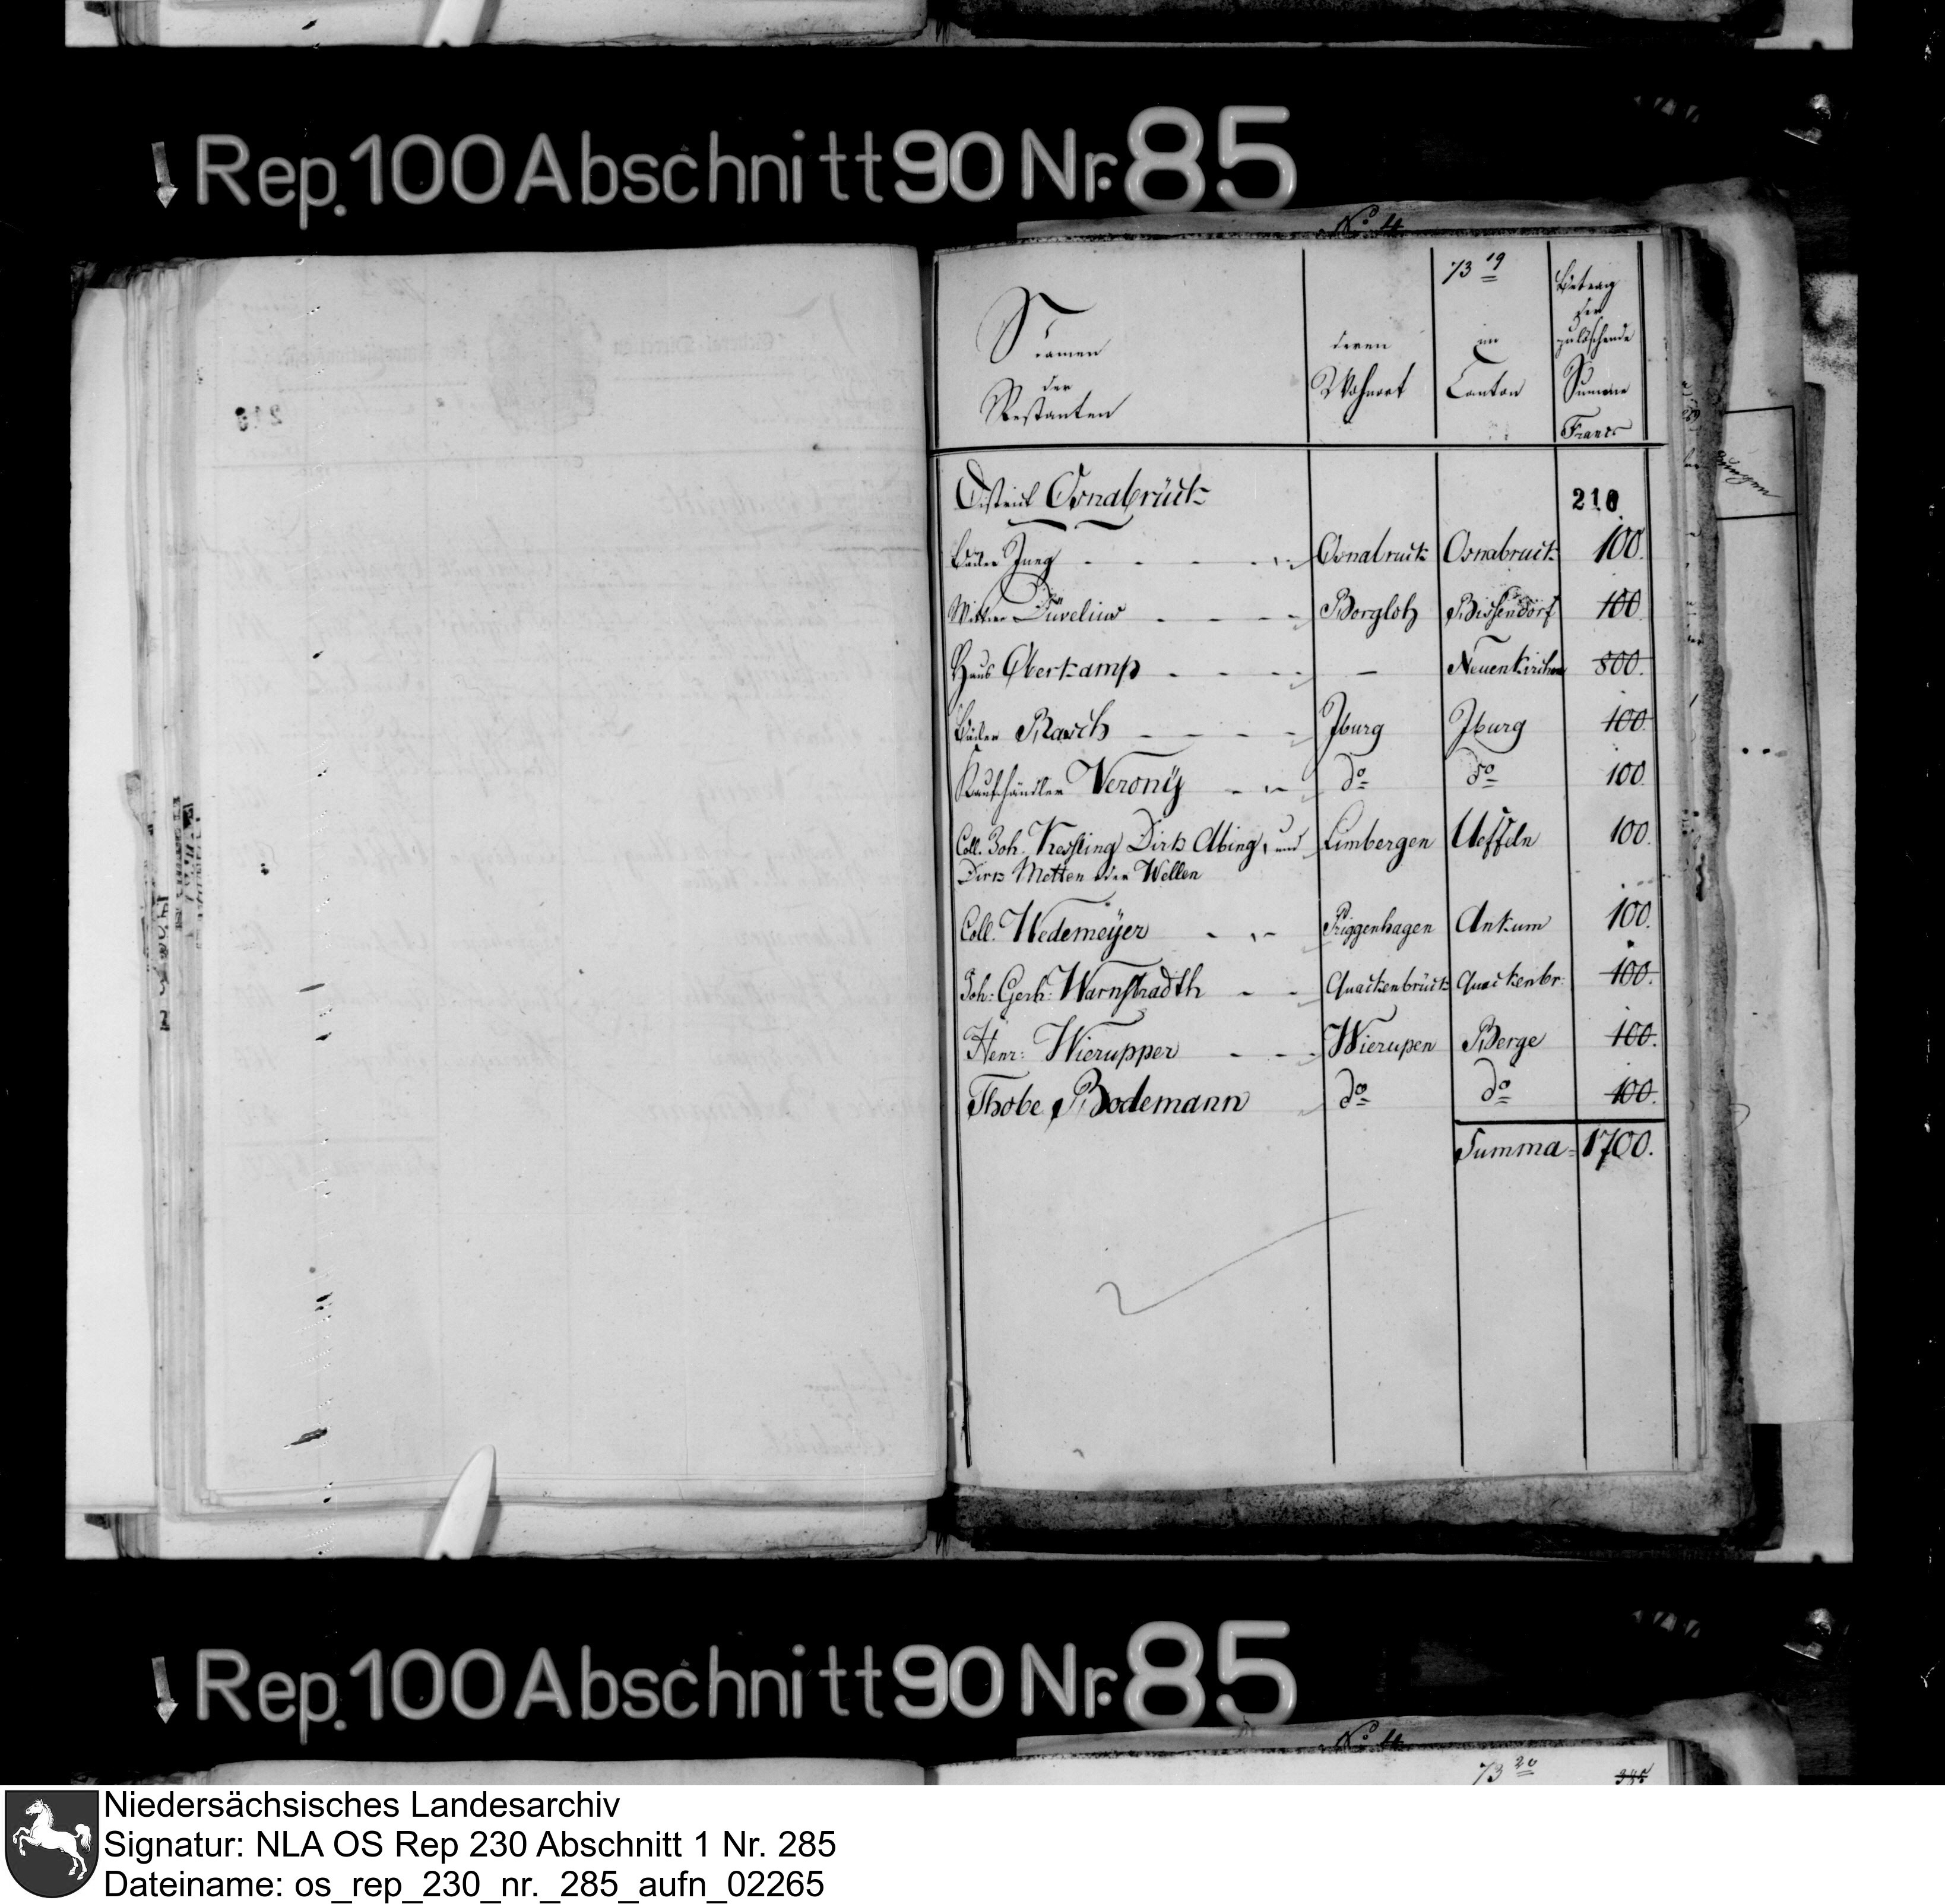 Rep. 100 Abschnitt 90 Nr. 85
No 4
73 19
Namen
der
Restanten
deren
Wohnort
im
Canton
Betrag
der
zulöschende
Summe
Francs
District Osnabrück
210
Jung Osnabruck Osnabruck 100.
Wittwe Düvelius Borgloh Bissendorf 100
Haus Oberkamp — Neuenkirchen 800.
Rasch Jburg Jburg 100
Kaufhändler Verony do do 100
Coll. Joh. Kressling Dirk Abing, und Limbergen Ueffeln 100.
Dirk Metten oder Wellen
Coll. Wedemeyer Priggenhagen Ankum 100.
Joh: Gerh: Warnstradth Quackenbrück Quackenbr: 100.
Henr: Wierupper Wierupen Berge 100.
Thobe Bodemann do do 100.
Summa = 1700.
Rep. 100 Abschnitt 90 Nr. 85
No 4
73 20
Niedersächsisches Landesarchiv
Signatur: NLA OS Rep 230 Abschnitt 1 Nr. 285
Dateiname: os_rep_230_nr._285_aufn_02265